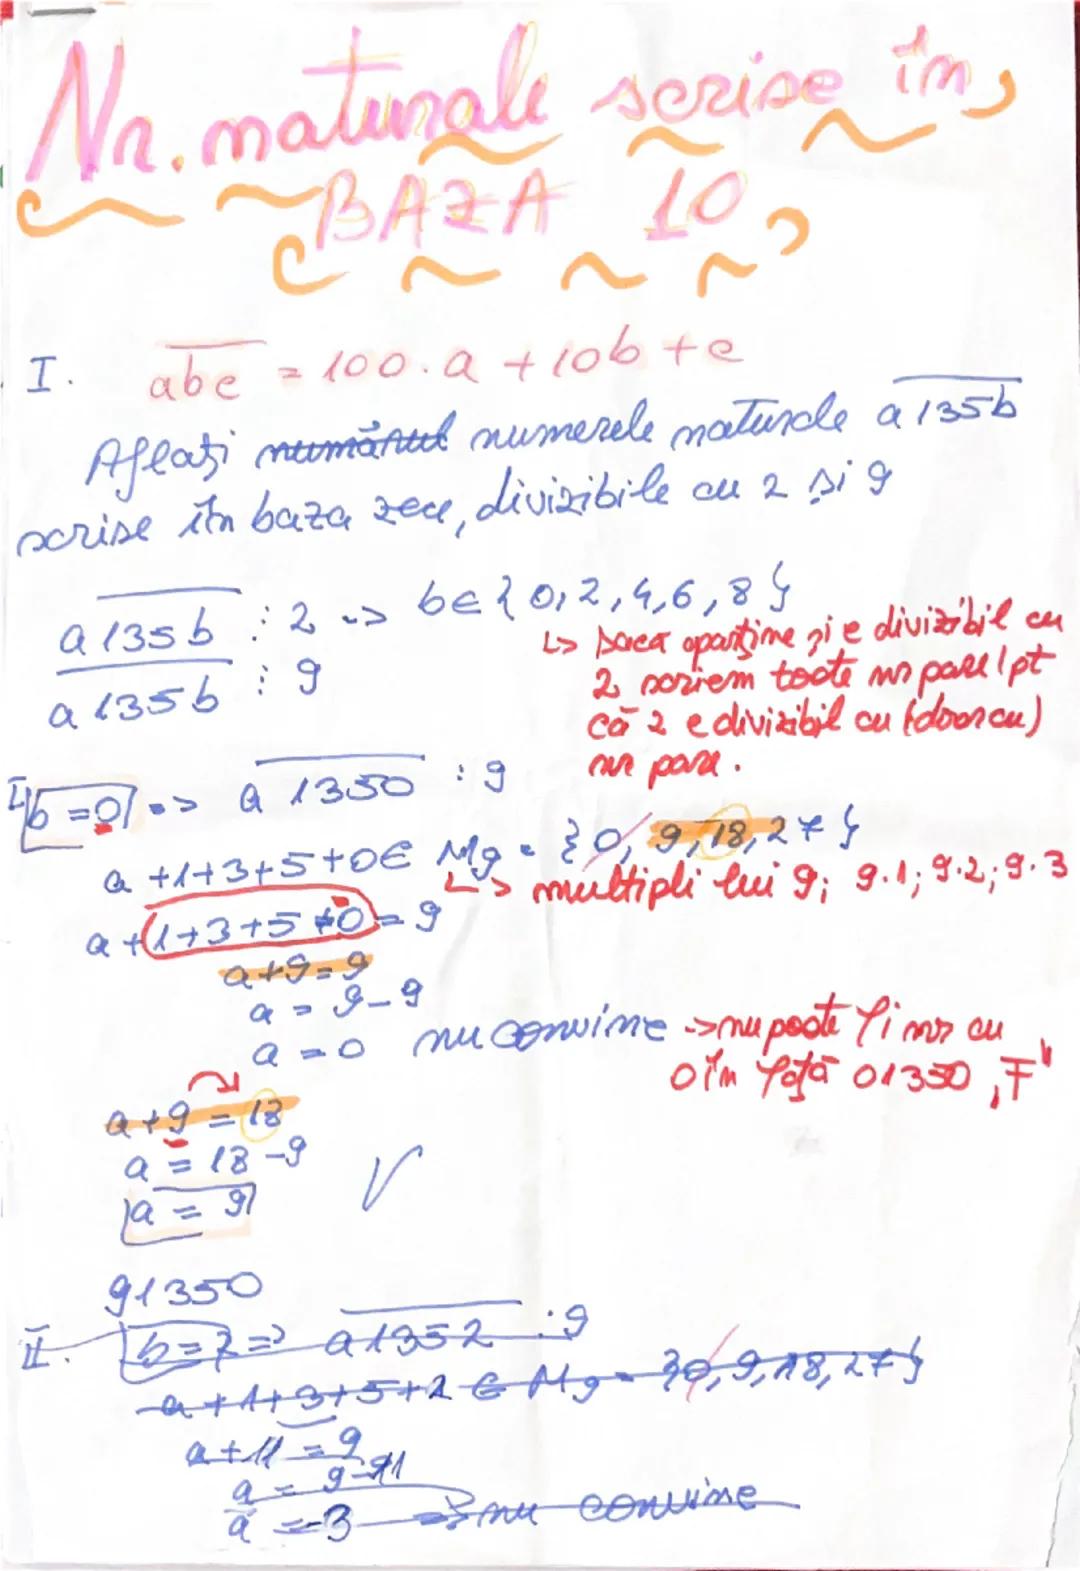 Nr. naturale scrise în
BAZA 10
I. abc = 100·a + 10b + c
Aflați numărul numerele naturale a135b
scrise în baza zece, divizibile cu 2 și 9
a135b ⋮ 2 => b∈{0,2,4,6,8}
a135b ⋮ 9
↳ Dacă aparține și e divizibil cu
2 scriem toate nr pare / pt
că 2 e divizibil cu (doar cu)
nr pare.
I b=0 => a1350 ⋮ 9
a+1+3+5+0∈ M9 = {0, 9, 18, 27}
↳ multipli lui 9; 9·1; 9·2; 9·3
a+1+3+5+0=9
a+9=9
a = 9-9
a = 0 nu convine -> nu poate fi nr cu
0 în față 01350 „F"
a+9 = 18
a = 18-9
a = 9 √
91350
II. b=2 => a1352 ⋮ 9
a+1+3+5+2 ∈ M9 = {0, 9, 18, 27}
a+11 = 9
a = 9-11
a = -3 => nu convine